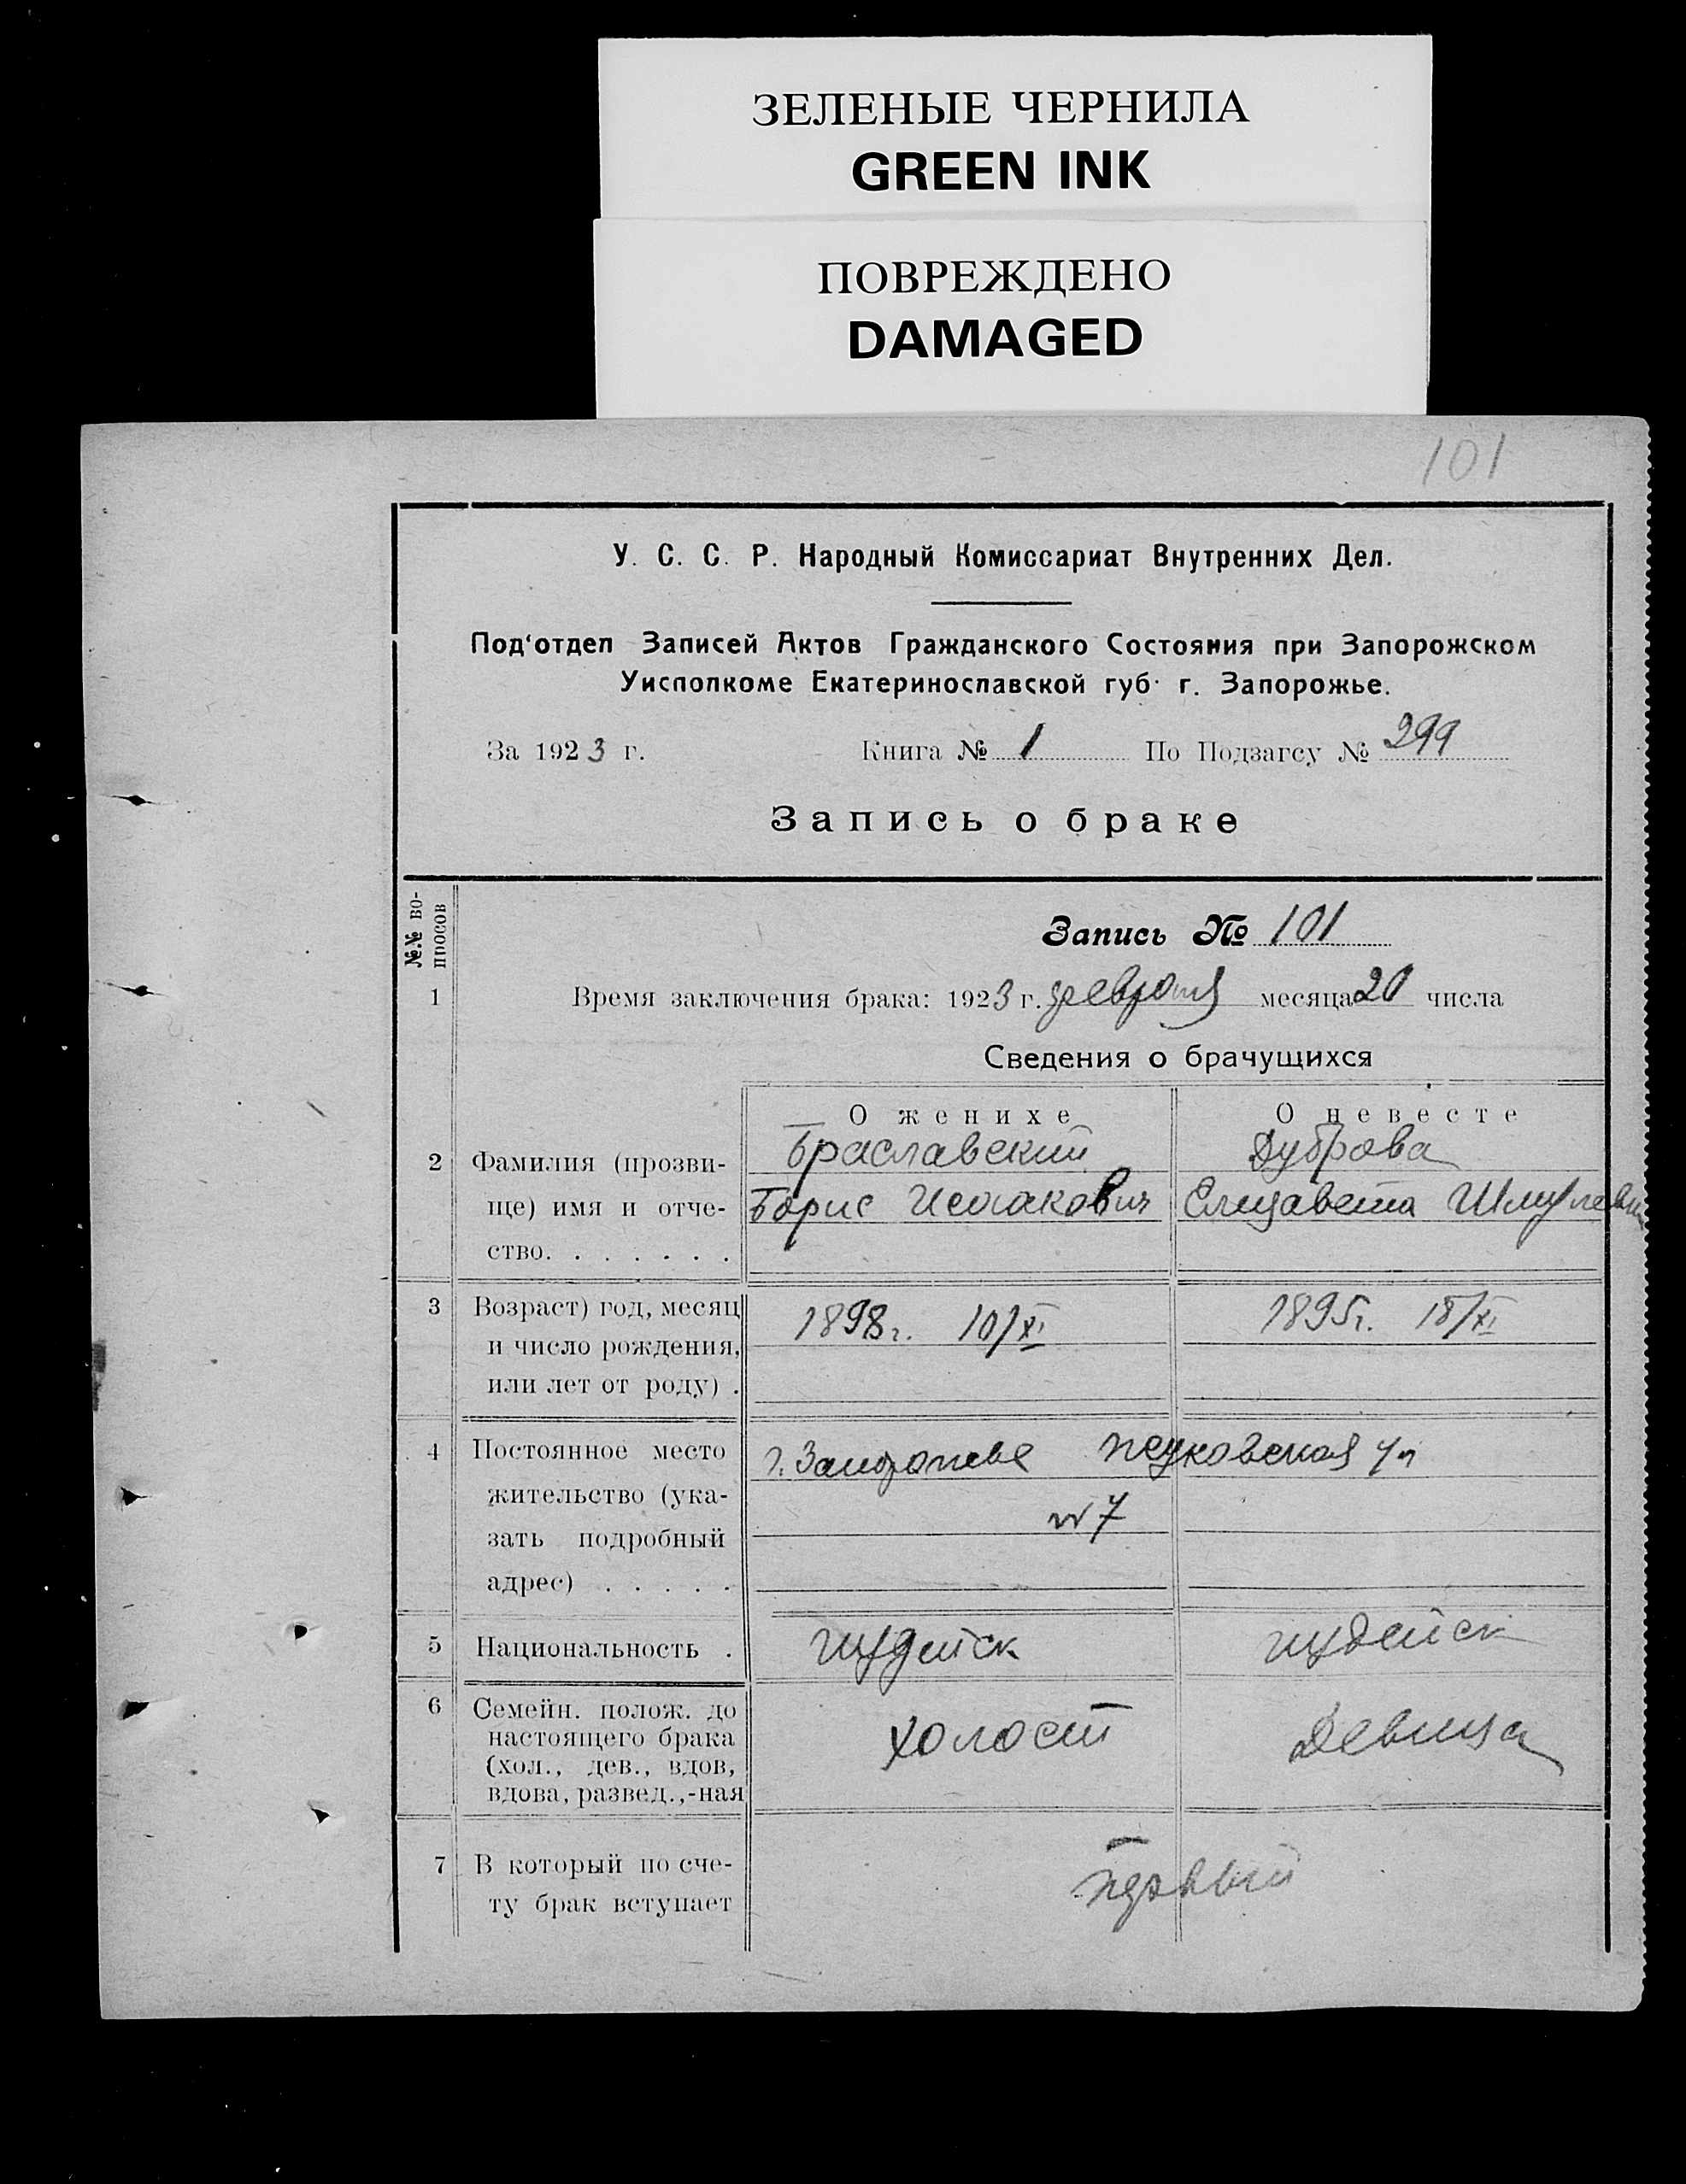 ЗЕЛЕНЫЕ ЧЕРНИЛА
GREEN INK
ПОВРЕЖДЕНО
DAMAGED
101
У. С. С. Р. Народный Комиссариат Внутренних Дел.
Под‘отдел Записей Актов Гражданского Состояния при Запорожском
Уисполкоме Екатеринославской губ. г. Запорожье.
За 1923 г. Книга № 1 По Подзагсу № 299
Запись о браке
№№ во-
просов
Запись № 101
1 Время заключения брака: 1923 г. февраля месяца 20 числа
Сведения о брачущихся
О женихе О невесте
2 Фамилия (прозви- Браславский Дуброва
ще) имя и отче- Борис Исаакович Елизавета
ство. . . . . . .
3 Возраст) год, месяц 1898 г. 10/XI 1895 г. 18/XI
и число рождения,
или лет от роду) .
4 Постоянное место г. Запорожье ул
жительство (ука- № 7
зать подробный
адрес) . . . . .
5 Национальность . иудейск иудейск
6 Семейн. полож. до
настоящего брака холост девица
(хол., дев., вдов,
вдова, развед.,-ная
7 В который по сче- первый
ту брак вступает